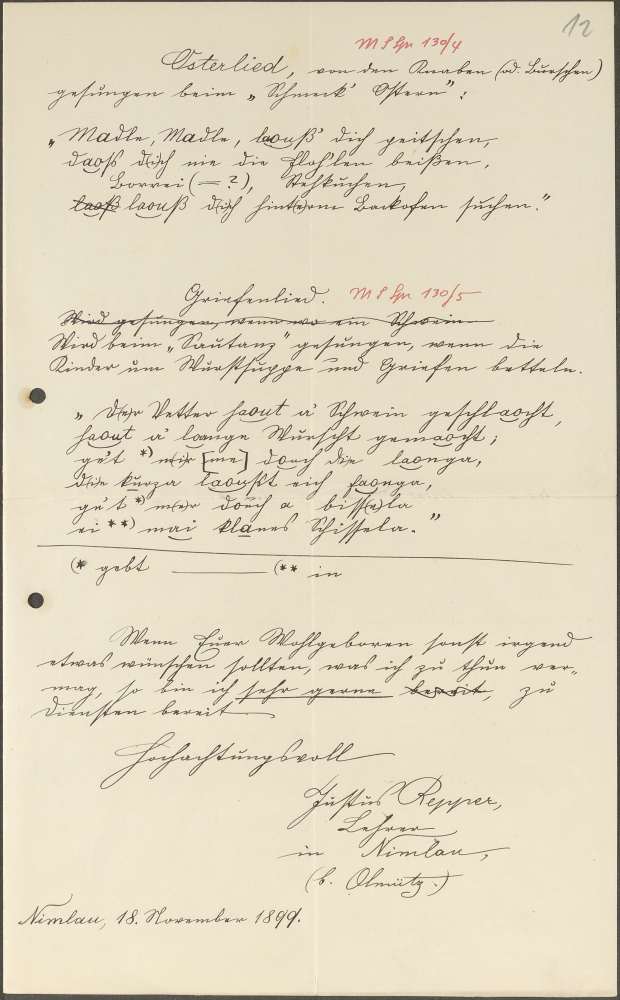 12
M S Gr 130/4
Osterlied, von den Knaben (od. Burschen)
gesungen beim „Schmeck' Ostern":
„Madle, Madle, laouß' dich peitschen,
daoss d(i)ch nie die Flöh'len beißen,
Borrei (= ?), Stehkuchen,
laoß laouß d(i)ch hint(e)rm Backofen suchen."
Griefenlied. M S Gr 130/5
Wird gesungen, wenn wo ein Schwein
Wird beim „Sautanz" gesungen, wenn die
Kinder um Wurstsuppe und Griefen betteln.
„D(e)r Vetter haout a' Schwein geschlaocht,
haout a' laange Wurscht gemaocht;
ga't *) m(i)r [me] doch die laonga,
d(i)e kurza laoußt eich
ga't *) m(e)r doch a biss(e)la
ei **) mai klanes Schissela."
(* gebt (** in
Wenn Euer Wohlgeboren sonst irgend
etwas wünschen sollten, was ich zu thun ver-
mag, so bin ich sehr gerne bereit, zu
Diensten bereit
Hochachtungsvoll
Justus Repper,
Lehrer
in Nimlau,
(b. Olmütz.)
Nimlau, 18. November 1899.